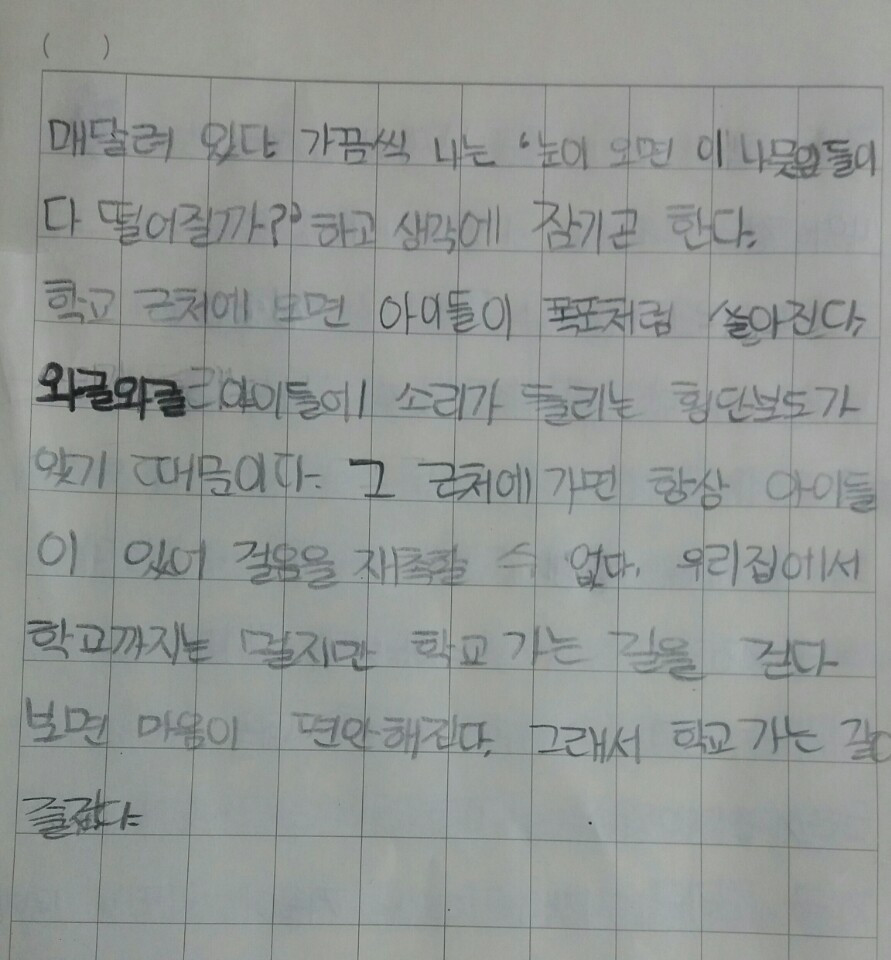 ( )
매달려 있다 가끔씩 나는 '눈이 오면 이 나뭇잎들이
다 떨어질까?' 하고 생각에 잠기곤 한다.
학교 근처에 오면 아이들이 폭포처럼 쏟아진다.
와글와글 아이들에 소리가 들리는 횡단보도가
있기 때문이다. 그 근처에 가면 항상 아이들
이 있어 걸음을 재촉할 수 없다. 우리집에서
학교까지는 멀지만 학교 가는 길을 걷다
보면 마음이 편안해진다. 그래서 학교 가는 길이
즐겁다